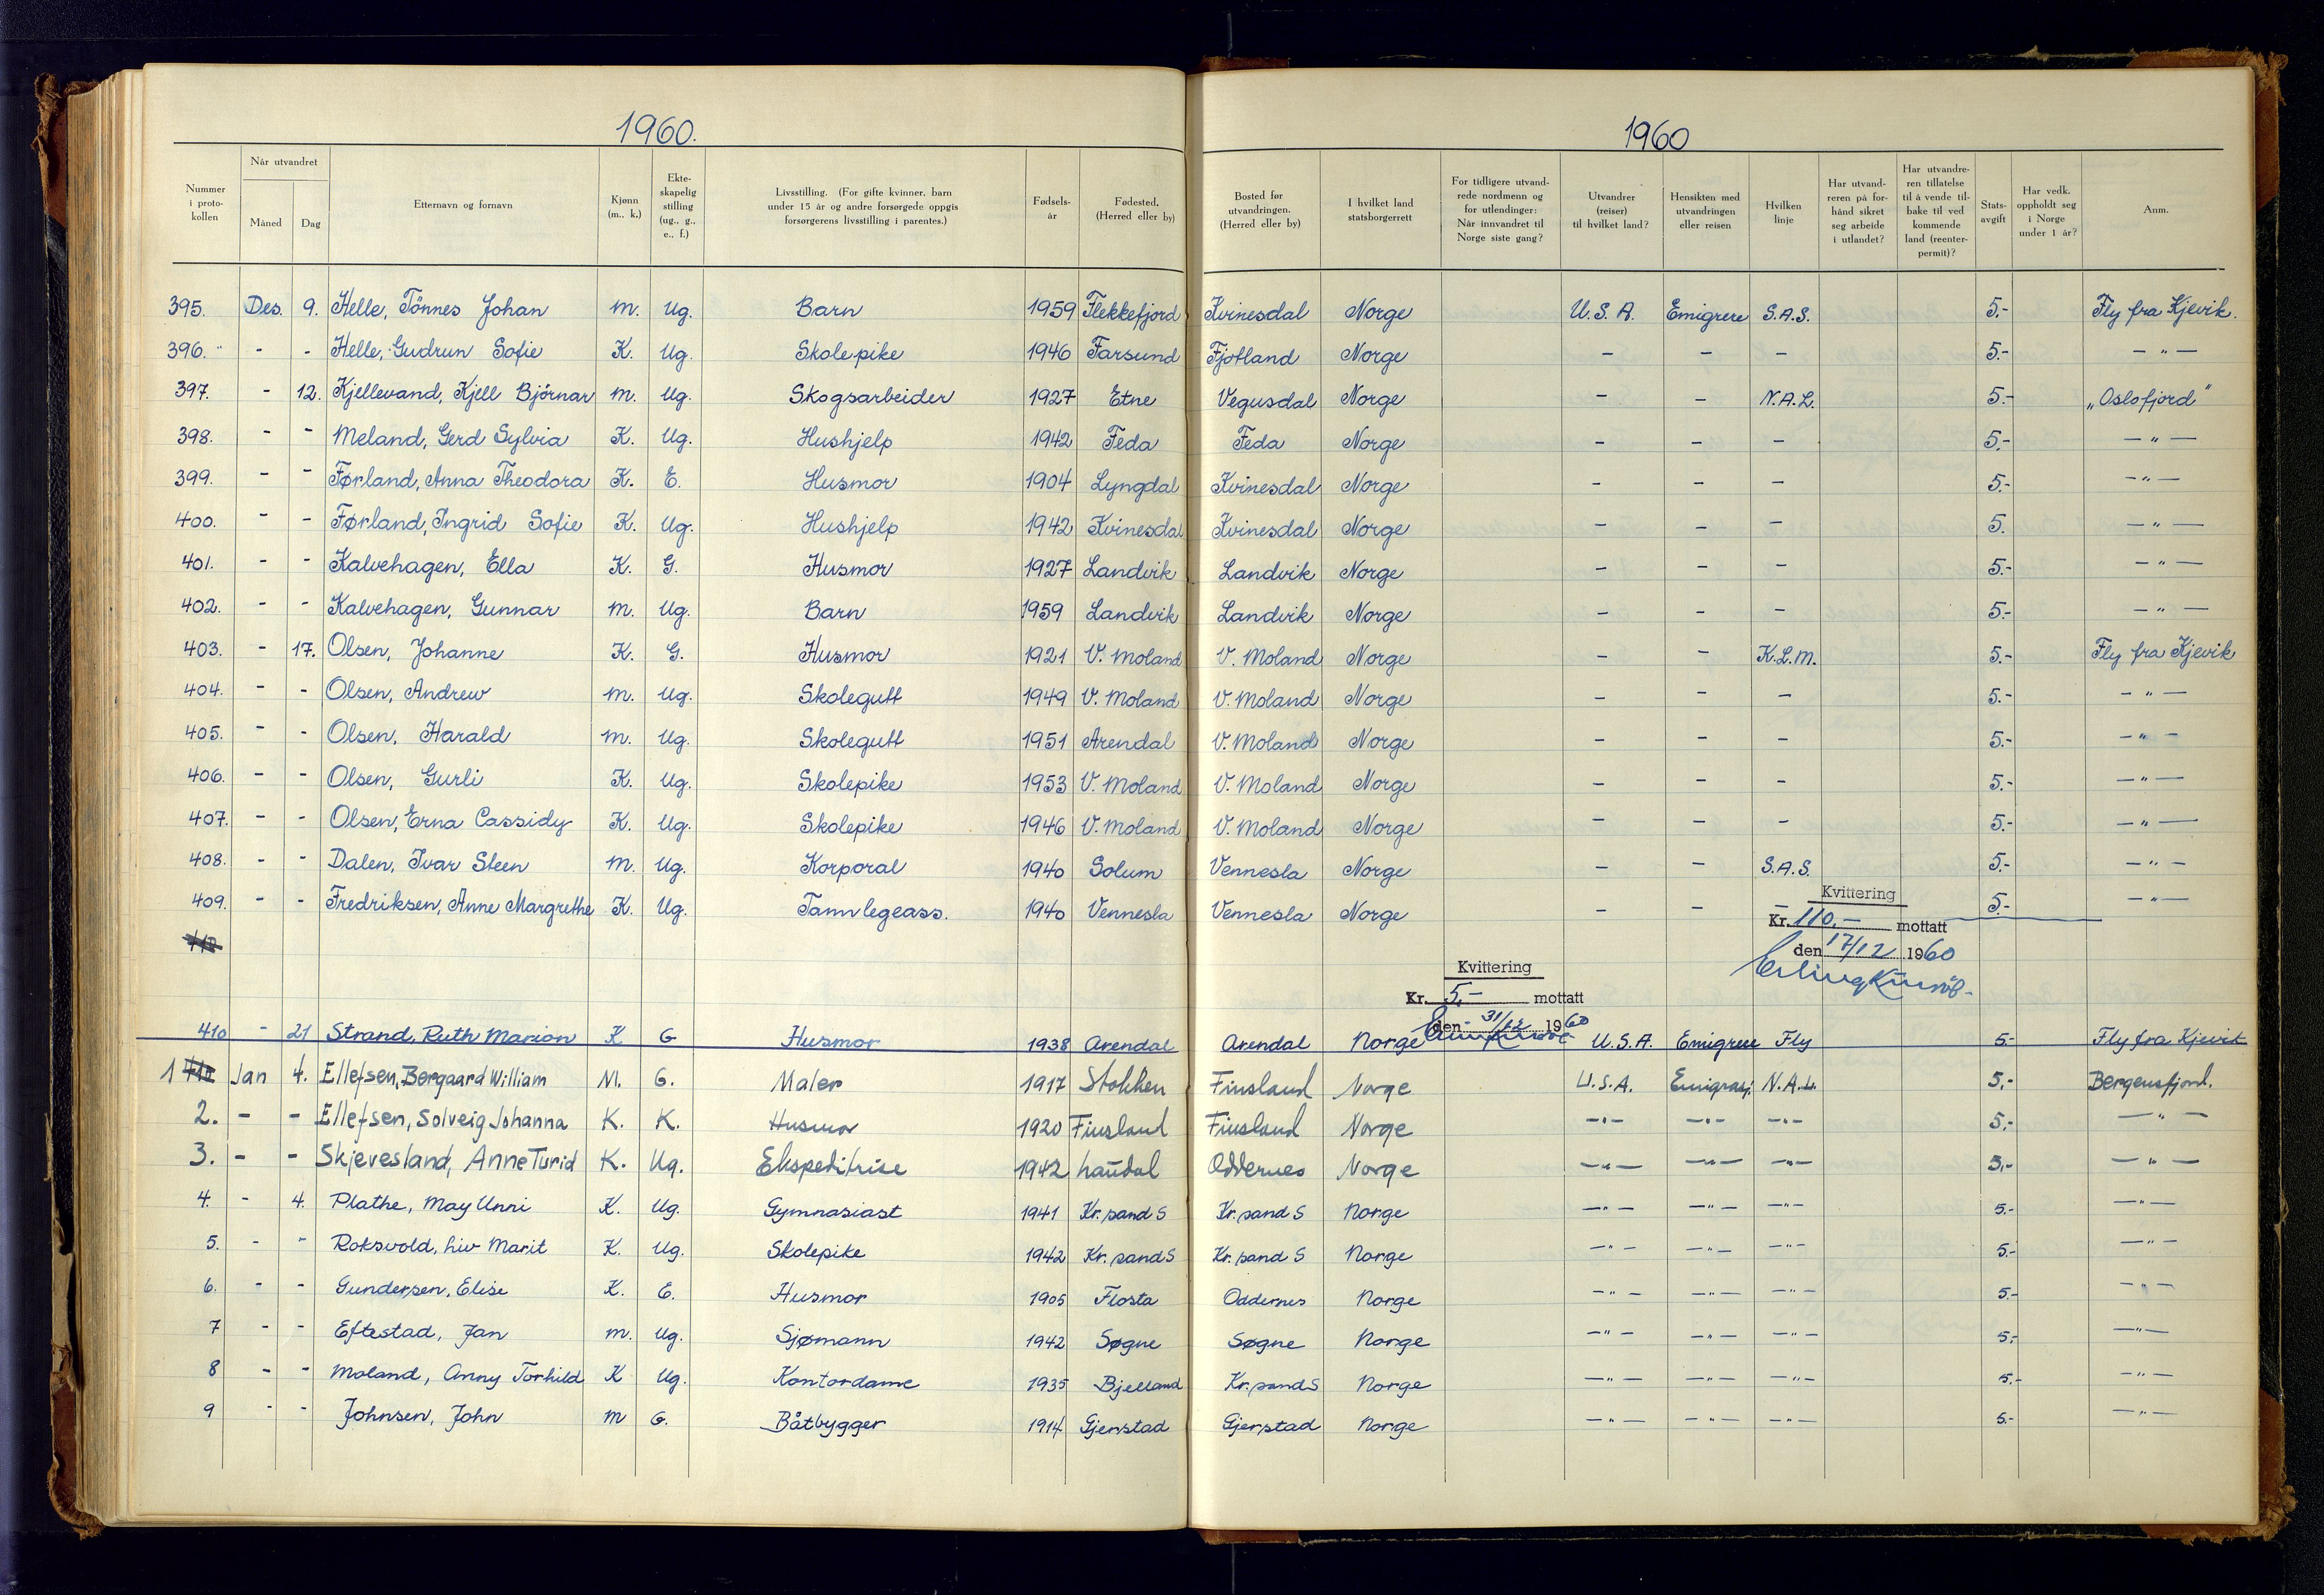 1960.
1960
Nummer i protokollen | Når utvandret Måned Dag | Etternavn og fornavn | Kjønn (m., k.) | Ekteskapelig stilling (ug., g., e., f.) | Livsstilling. (For gifte kvinner, barn under 15 år og andre forsørgede oppgis forsørgerens livsstilling i parentes.) | Fødselsår | Fødested. (Herred eller by) | Bosted før utvandringen. (Herred eller by) | I hvilket land statsborgerrett | For tidligere utvandrede nordmenn og for utlendinger: Når innvandret til Norge siste gang? | Utvandrer (reiser) til hvilket land? | Hensikten med utvandringen eller reisen | Hvilken linje | Har utvandreren på forhånd sikret seg arbeide i utlandet? | Har utvandreren tillatelse til å vende tilbake til ved kommende land (reenterpermit)? | Statsavgift | Har vedk. oppholdt seg i Norge under 1 år? | Anm.
395. Des. 9. Helle, Tönnes Johan m. Ug. Barn 1959 Flekkefjord Kvinesdal Norge U.S.A. Emigrere S.A.S. 5.- Fly fra Kjevik.
396. - - Helle, Gudrun Sofie K. Ug. Skolepike 1946 Farsund Fjotland Norge - - - 5.- -"-
397. - 12. Kjellevand, Kjell Björnar m. Ug. Skogsarbeider 1927 Etne Vegusdal Norge - - N.A.L. 5.- „Oslofjord"
398. - - Meland, Gerd Sylvia K. Ug. Hushjelp 1942 Feda Feda Norge - - - 5.- -"-
399. - - Førland, Anna Theodora K. E. Husmor 1904 Lyngdal Kvinesdal Norge - - - 5.- -"-
400. - - Førland, Ingrid Sofie K. Ug. Hushjelp 1942 Kvinesdal Kvinesdal Norge - - - 5. -"-
401. - - Kalvehagen, Ella K. G. Husmor 1927 Landvik Landvik Norge - - - 5.- -"-
402. - - Kalvehagen, Gunnar m. Ug. Barn 1959 Landvik Landvik Norge - - - 5.- -"-
403. - 17. Olsen, Johanne K. G. Husmor 1921 V. Moland V. Moland Norge - - K.L.M. 5.- Fly fra Kjevik
404. - - Olsen, Andrew m. Ug. Skolegutt 1949 V. Moland V. Moland Norge - - - 5.- -"-
405. - - Olsen, Harald m. Ug. Skolegutt 1951 Arendal V. Moland Norge - - - 5.- -"-
406. - - Olsen, Gurli K. Ug. Skolepike 1953 V. Moland V. Moland Norge - - - 5.- -"-
407. - - Olsen, Erna Cassidy K. Ug. Skolepike 1946 V. Moland V. Moland Norge - - - 5.- -"-
408. - - Dalen, Ivar Steen m. Ug. Korporal 1940 Solum Vennesla Norge - - S.A.S. 5.- -"-
409. - - Fredriksen, Anne Margrethe K. Ug. Tannlegeass. 1940 Vennesla Vennesla Norge - - - 5.- -"-
Kvittering
Kr. 110,- mottatt
den 17/12 1960
410
Kvittering
Kr. 5,- mottatt
den 31/12 1960
410 - 21 Strand, Ruth Marion K G Husmor 1938 Arendal Arendal Norge U.S.A. Emigrere Fly 5.- Fly fra Kjevik
1 410 Jan 4. Ellefsen, Borgaard William M. G. Maler 1917 Stokken Finsland Norge U.S.A. Emigrasj. N.A.L. 5,- Bergensfjord.
2. - - Ellefsen, Solveig Johanna K. K. Husmor 1920 Finsland Finsland Norge -"- -"- -"- 5,- -"-
3. - - Skjevesland, Anne Turid K. Ug. Ekspeditrise 1942 Laudal Oddernes Norge -"- -"- -"- 5,- -"-
4. - 4. Plathe, May Unni K. Ug. Gymnasiast 1941 Kr.sand S Kr.sand S Norge -"- -"- -"- 5.- -"-
5. - - Roksvold, Liv Marit K. Ug. Skolepike 1942 Kr.sand S Kr.sand S Norge -"- -"- -"- 5.- -"-
6. - - Gundersen, Elise K. E. Husmor 1905 Flosta Oddernes Norge -"- -"- -"- 5.- -"-
7 - - Eftestad, Jan m. Ug. Sjømann 1942 Søgne Søgne Norge -"- -"- -"- 5,- -"-
8 - - Moland, Anny Torhild K Ug. Kontordame 1935 Bjelland Kr.sand S Norge -"- -"- -"- 5.- -"-
9 - - Johnsen, John m G. Båtbygger 1914 Gjerstad Gjerstad Norge -"- -"- -"- 5.- -"-